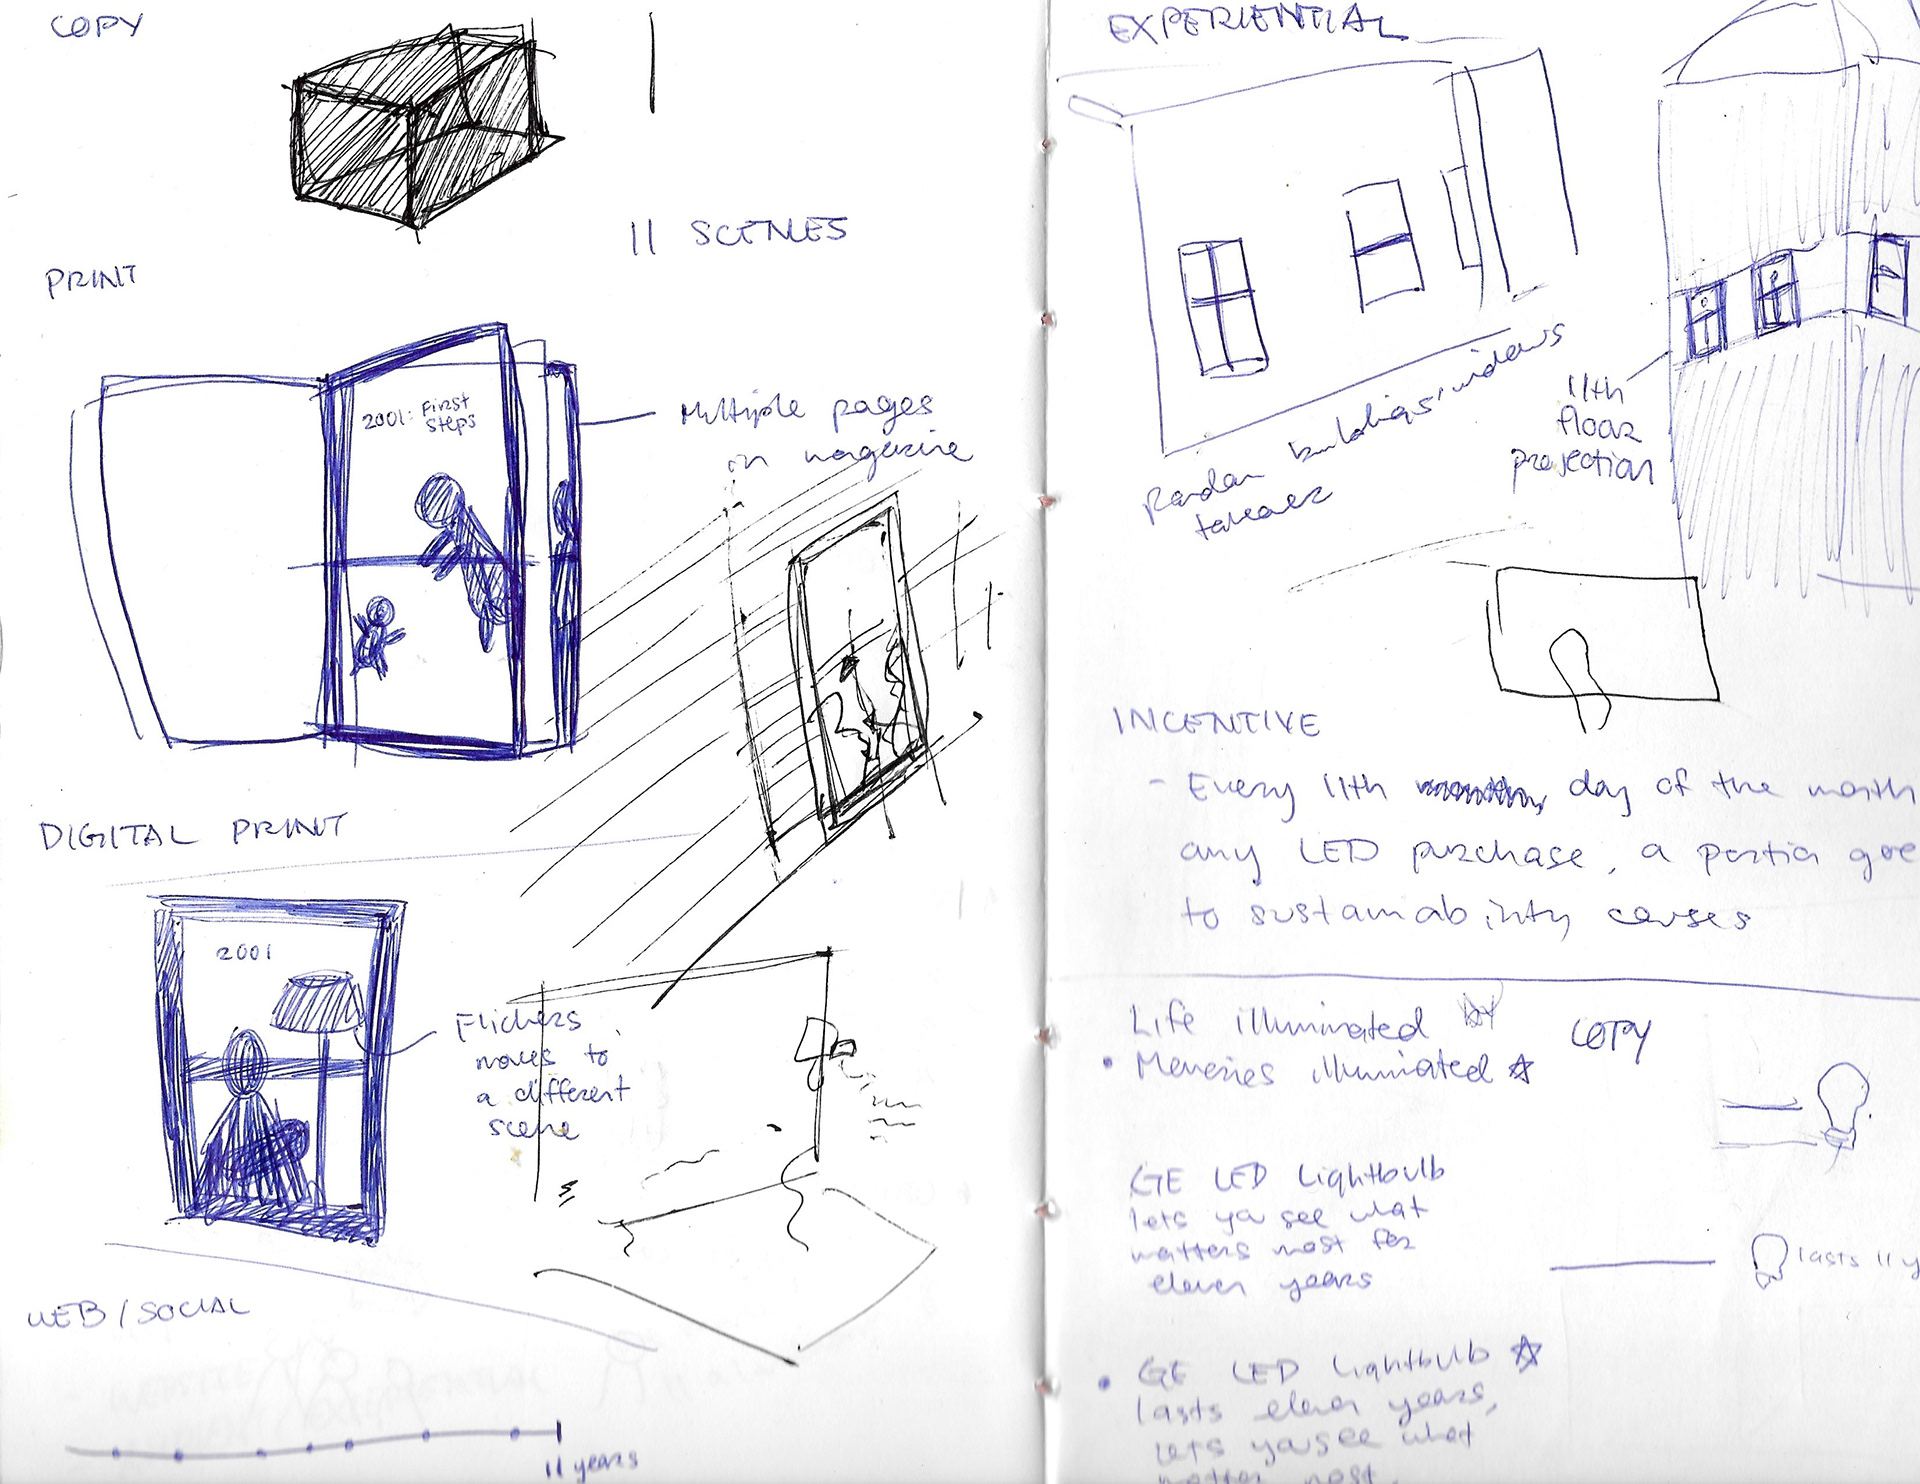 COPY
11 SCENES
PRINT
2001: First
Steps
Multiple pages
in magazine
DIGITAL PRINT
2001
Flickers
moves to
a different
scene
WEB/SOCIAL
11 years
EXPERIENTIAL
Random buildings' windows
takeover
11th
floor
projection
INCENTIVE
- Every 11th day of the month
any LED purchase, a portion goe
to sustainability causes
Life illuminated
• Memories illuminated ☆
COPY
GE LED Lightbulb
lets you see what
matters most for
eleven years
lasts 11 y
• GE LED Lightbulb ☆
lasts eleven years,
lets you see what
matter most.